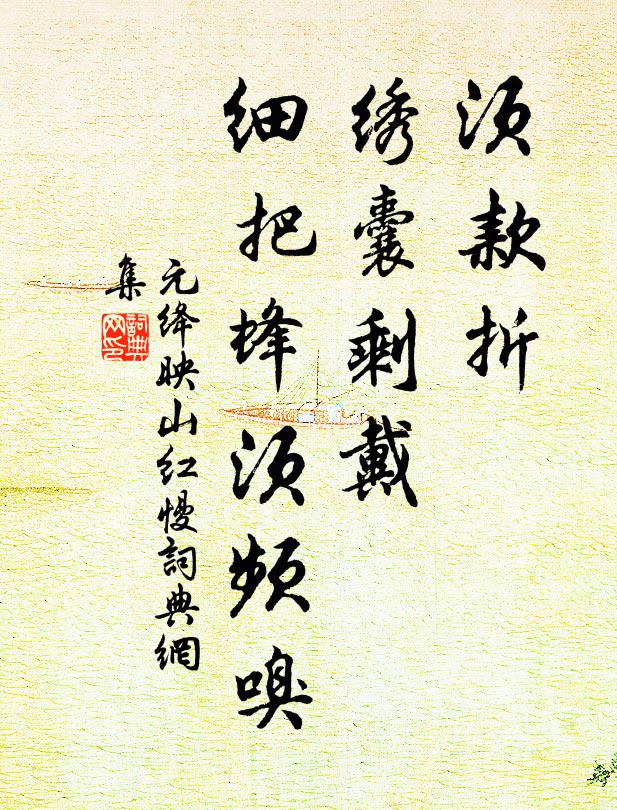 须款折
绣囊剩戴
细把蜂须频嗅
元绛映山红慢詞典網
集
詞典
网印